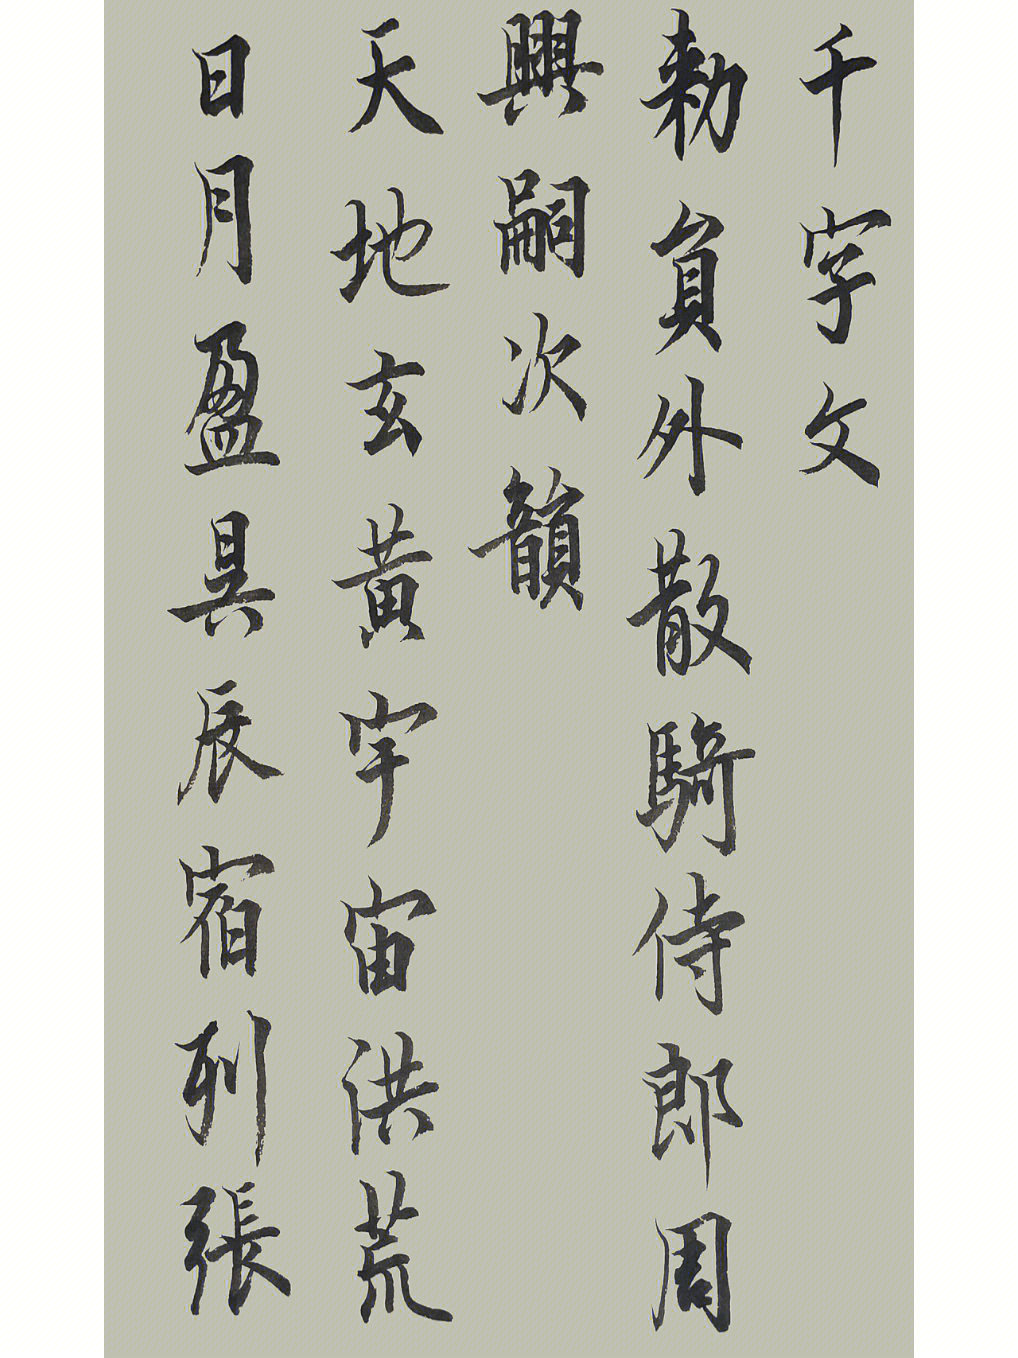 千字文
勅負外散騎侍郎周
興嗣次韻
天地玄黄宇宙洪荒
日月盈昃辰宿列張